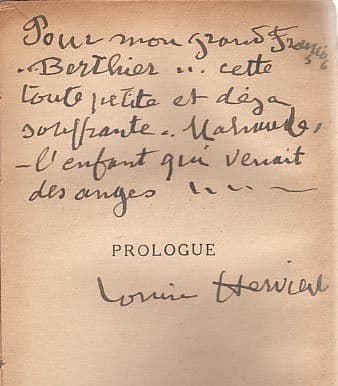 Pour mon grand Francis
.. Berthier ... cette
toute petite et déja
souffrante .. 
– l'enfant qui venait
des anges
PROLOGUE
Louise Hervieu